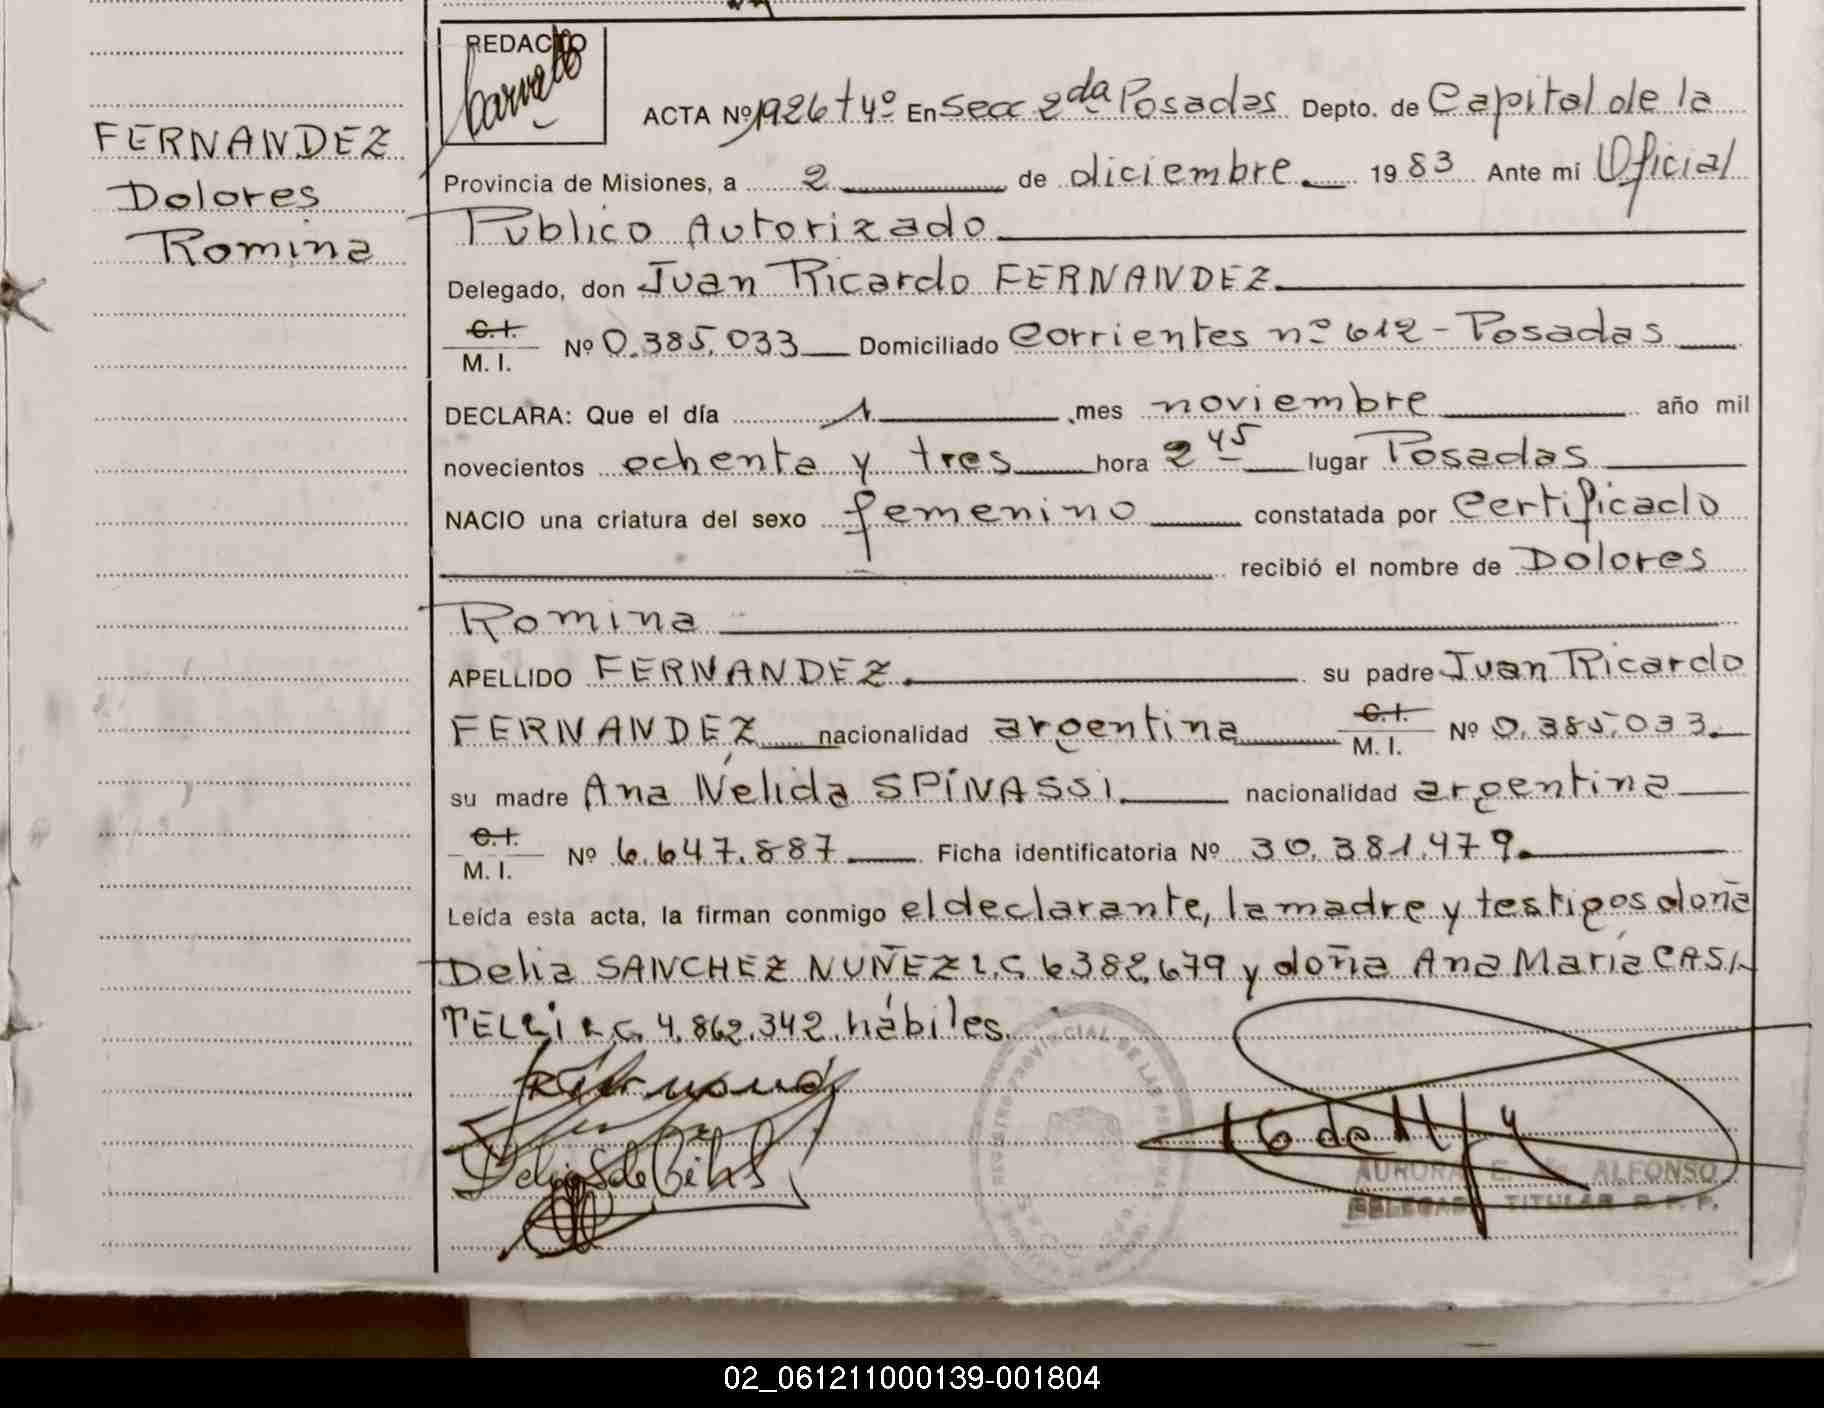 REDACTO
ACTA Nº 1926 tº 4º En Secc 2da Posadas Depto. de Capital de la
FERNANDEZ
Dolores
Romina
Provincia de Misiones, a 2 de diciembre 1983 Ante mi Oficial
Publico Autorizado
Delegado, don Juan Ricardo FERNANDEZ
C.I.
M. I. Nº 0.385.033 Domiciliado Corrientes nº 612 - Posadas
DECLARA: Que el día 1 mes noviembre año mil
novecientos ochenta y tres hora 2 45 lugar Posadas
NACIO una criatura del sexo femenino constatada por Certificado
recibió el nombre de Dolores
Romina
APELLIDO FERNANDEZ su padre Juan Ricardo
FERNANDEZ nacionalidad argentina C.I. M. I. Nº 0.385.033.
su madre Ana Nélida SPINASSI nacionalidad argentina
C.I.
M. I. Nº 6.647.887 Ficha identificatoria Nº 30.381.479.
Leída esta acta, la firman conmigo el declarante, la madre y testigos doña
Delia SANCHEZ NUÑEZ L.C. 6382.679 y doña Ana María CAS
L.C. 4.862.342 hábiles.
REGISTRO PROVINCIAL DE LAS PERSONAS
AURORA E. de ALFONSO
DELEGADA TITULAR R. P. P.
02_061211000139-001804